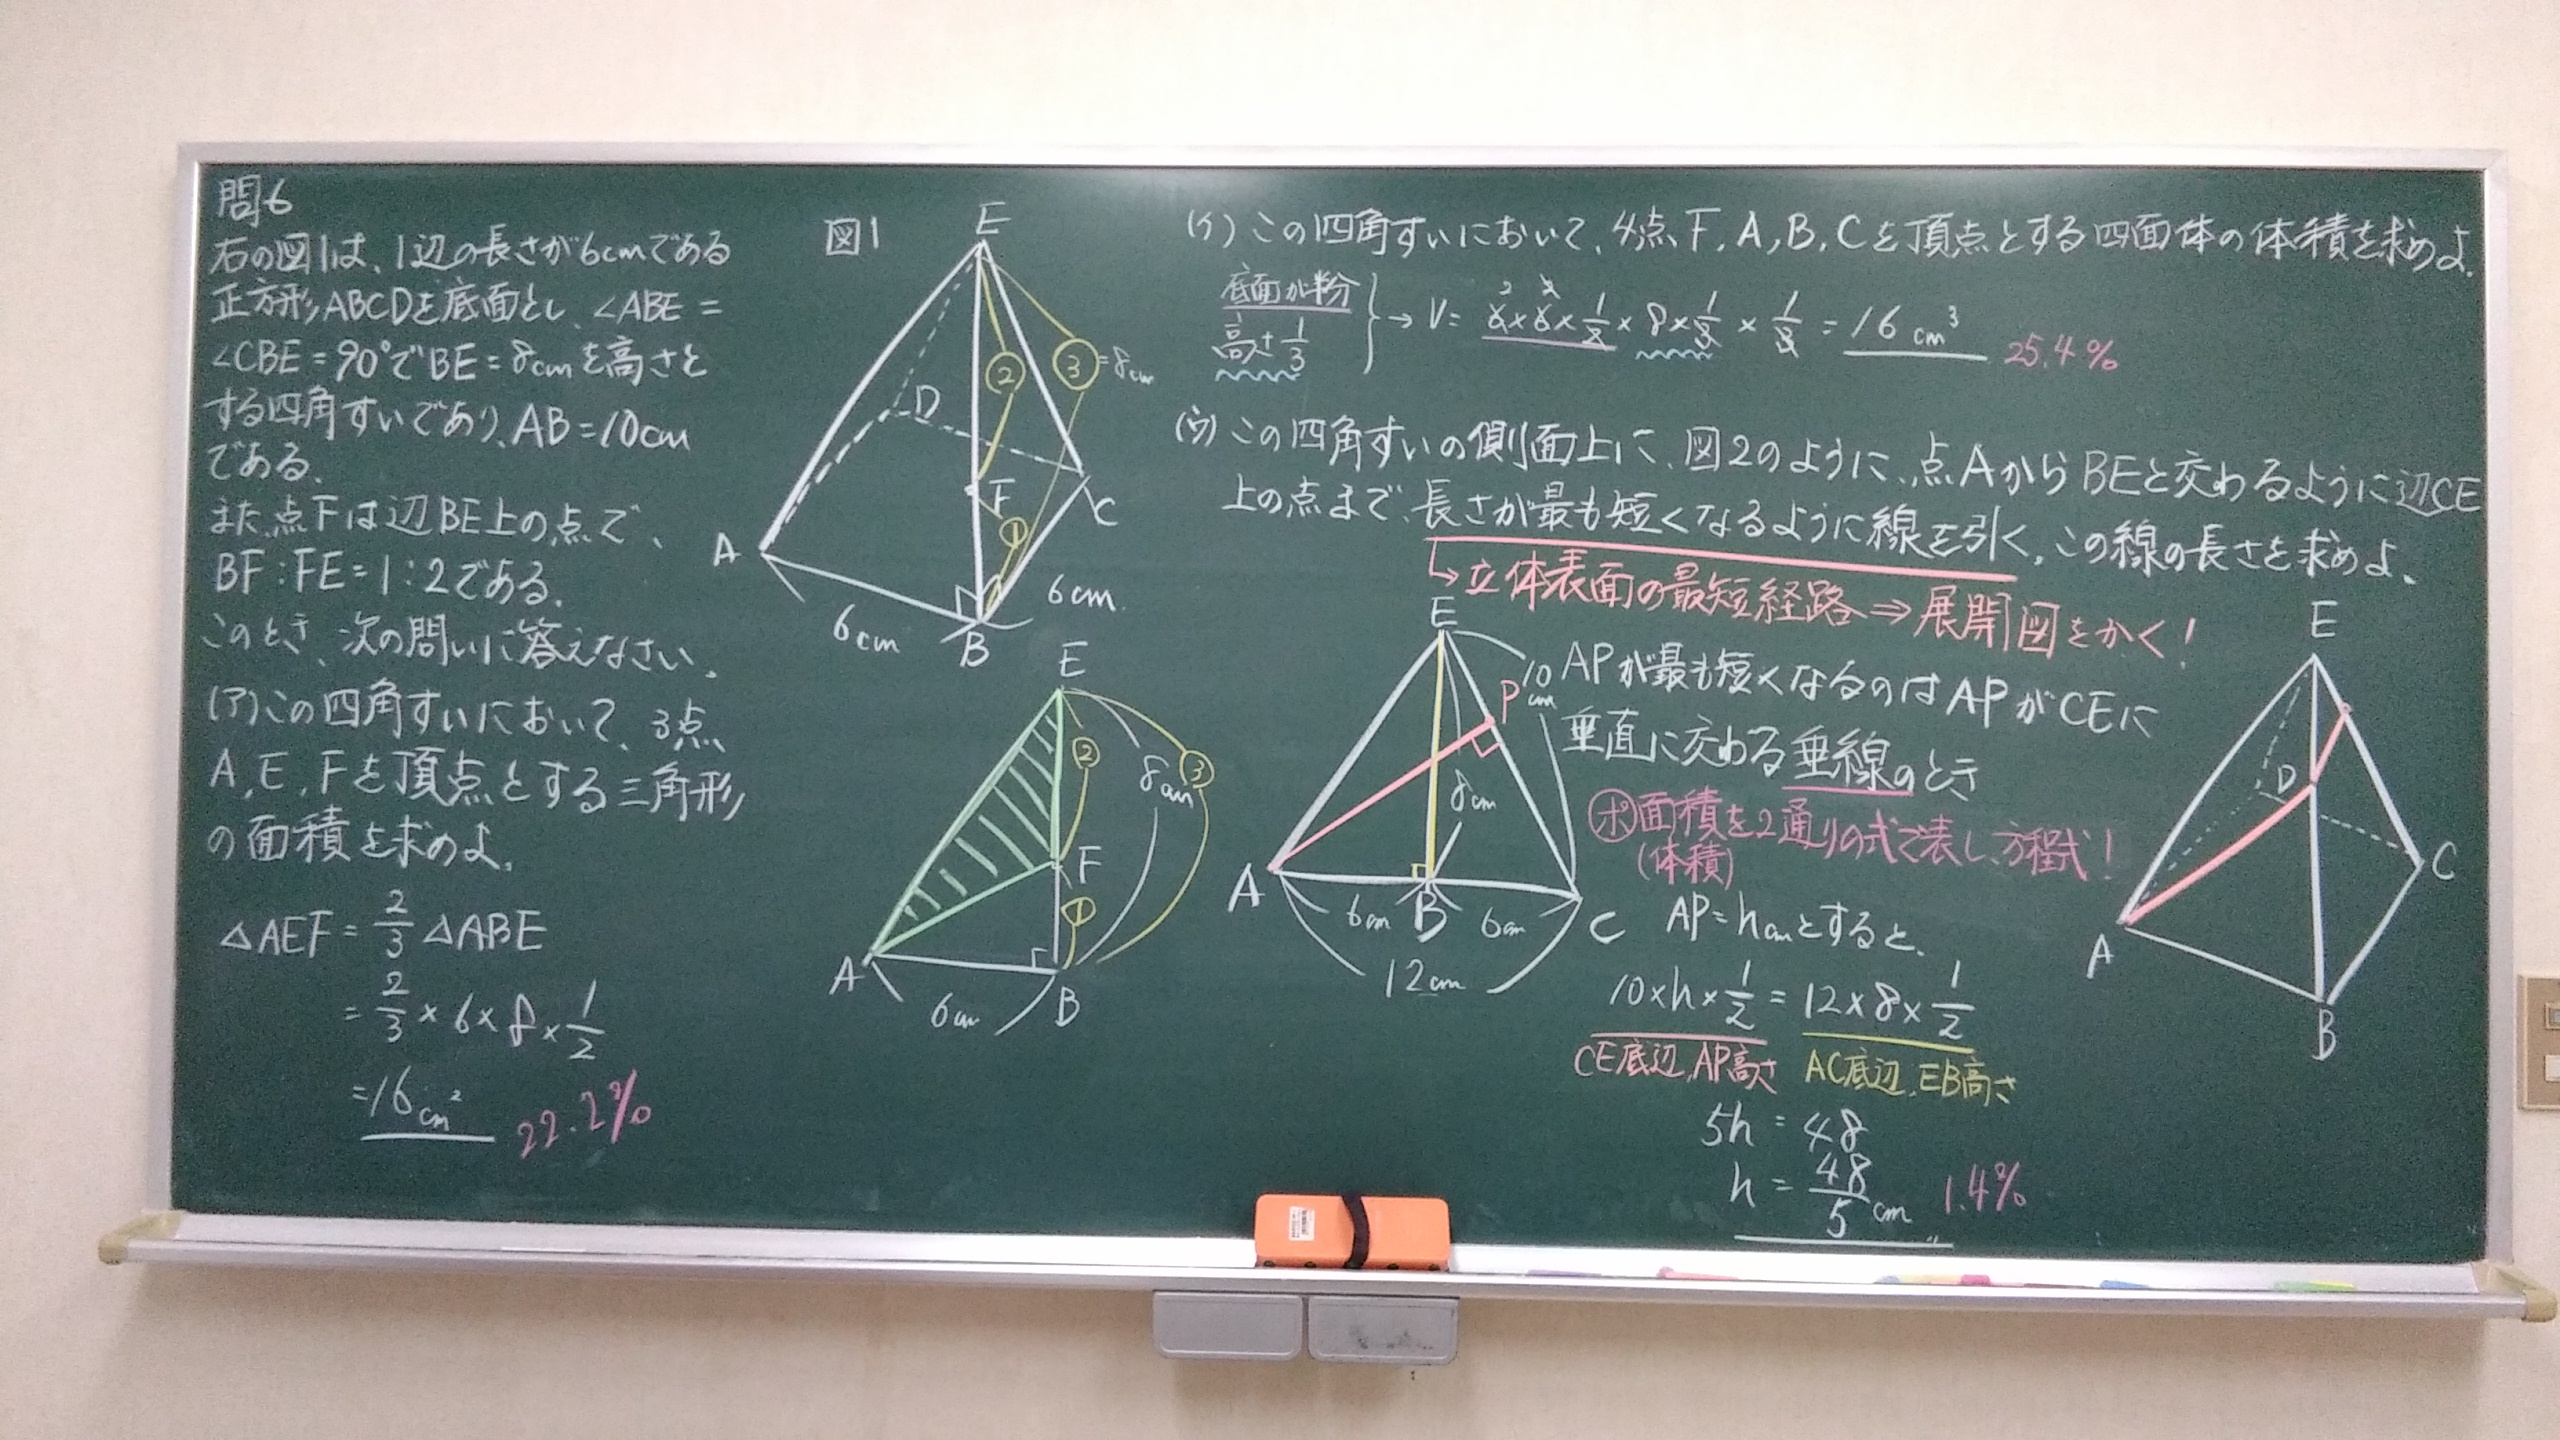 問6
右の図1は、1辺の長さが6cmである
正方形ABCDを底面とし、∠ABE=
∠CBE=90°でBE=8cmを高さと
する四角すいであり、AB=10cm
である。
また、点Fは辺BE上の点で、
BF:FE=1:2である。
このとき、次の問いに答えなさい。
(ア)この四角すいにおいて、3点
A,E,Fを頂点とする三角形
の面積を求めよ。
△AEF=2/3△ABE
=2/3×6×8×1/2
=16cm²
22.2%
図1
E
②
③=8cm
D
F
C
①
A
6cm
B
6cm
E
②
8cm
③
F
①
A
6cm
B
(イ)この四角すいにおいて、4点F,A,B,Cを頂点とする四面体の体積を求めよ。
底面が半分
高さ1/3
→V=6×6×1/2×8×1/3×1/3=16cm³
2
25.4%
(ウ)この四角すいの側面上に、図2のように、点AからBEと交わるように辺CE
上の点まで、長さが最も短くなるように線を引く。この線の長さを求めよ。
→立体表面の最短経路⇒展開図をかく!
E
10cm
P
8cm
A
6cm
B
6cm
C
12cm
APが最も短くなるのはAPがCEに
垂直に交わる垂線のとき
ポ面積を2通りの式で表し、方程式!
(体積)
AP=hcmとすると、
10×h×1/2=12×8×1/2
CE底辺,AP高さ
AC底辺,EB高さ
5h=48
h=48/5cm
1.4%
E
D
C
A
B